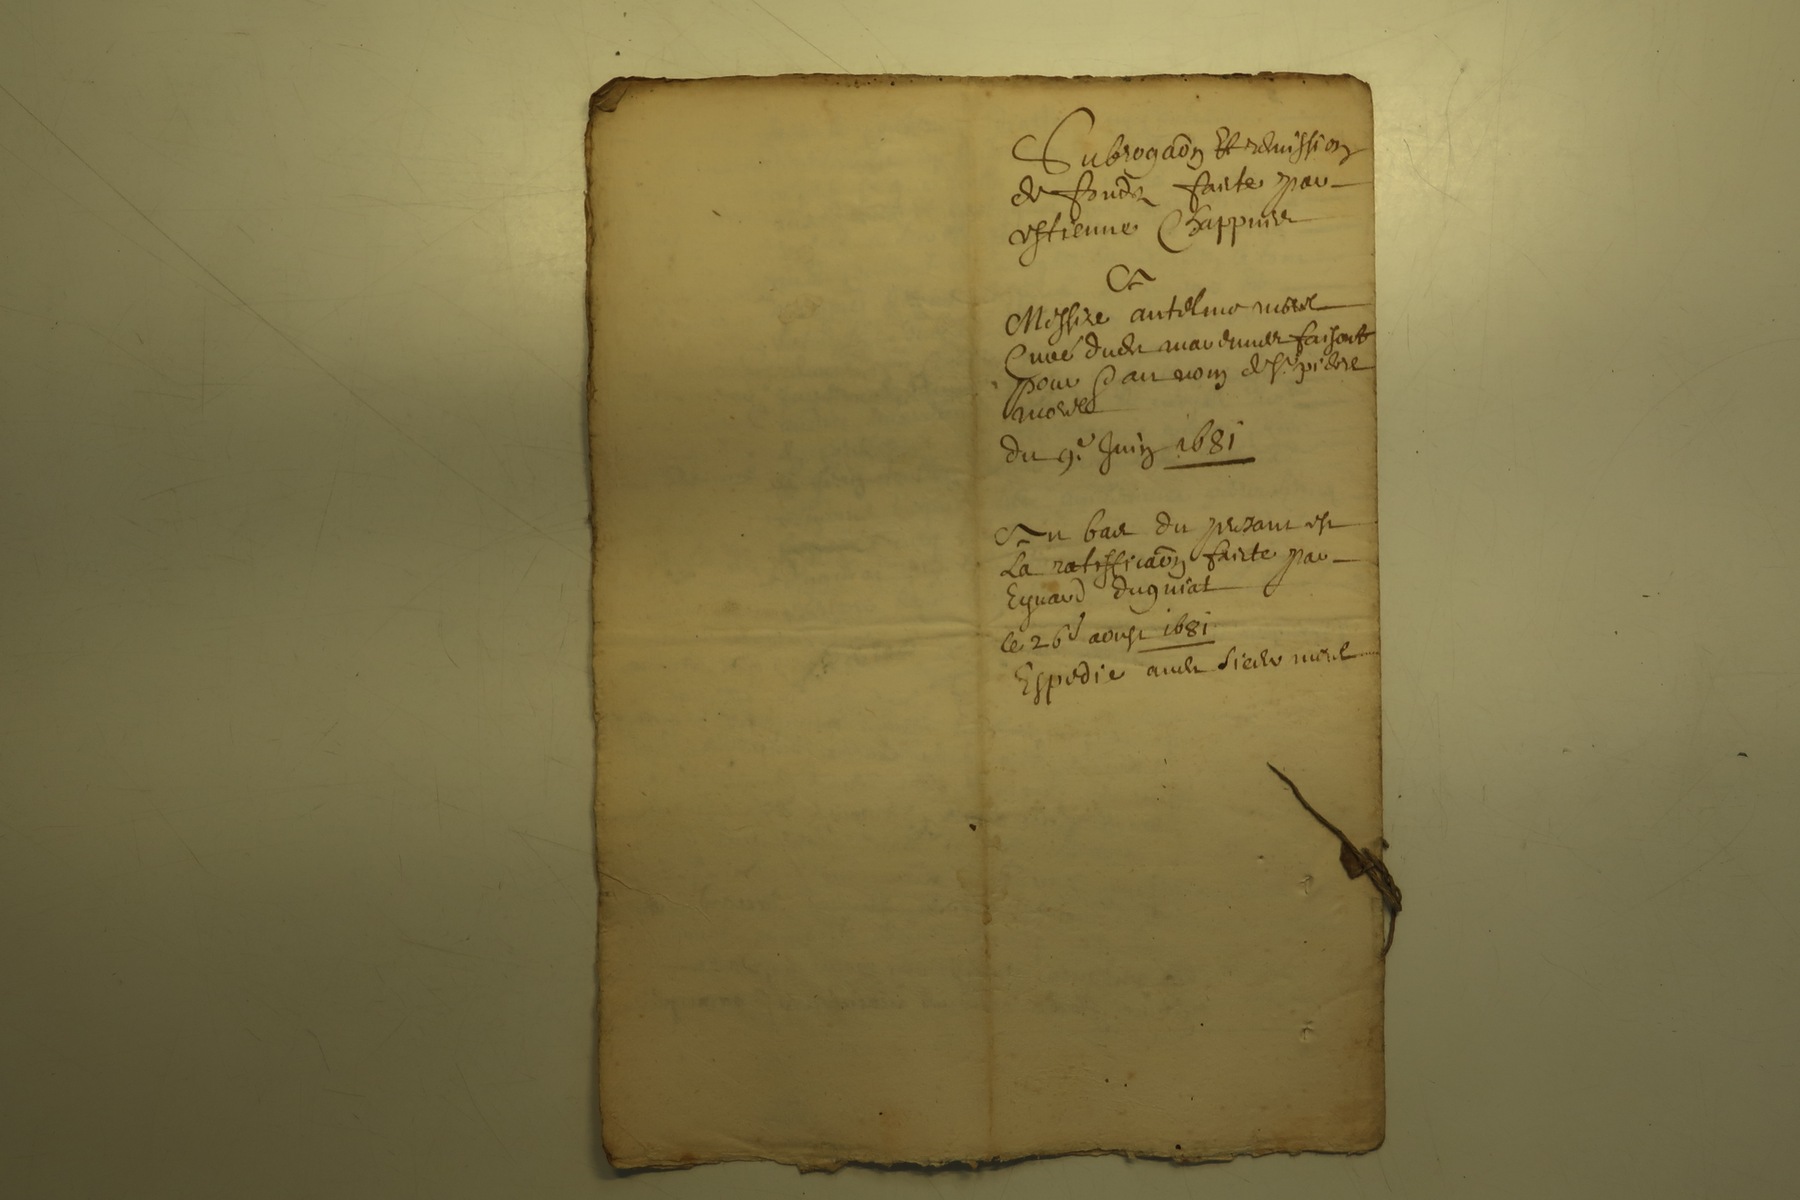 Subrogaõn Et remission
de fondz faicte par
estienne Chappuis
Ca
Messire antelme morel
Curé du marennes faisant
pour & au nom de sr pierre
morel
du 9e Juin 1681
En bas du presant est
La ratifficaõn faicte par
Eynard duguiat
le 26e aoust 1681
Espedie audt Sieur morel